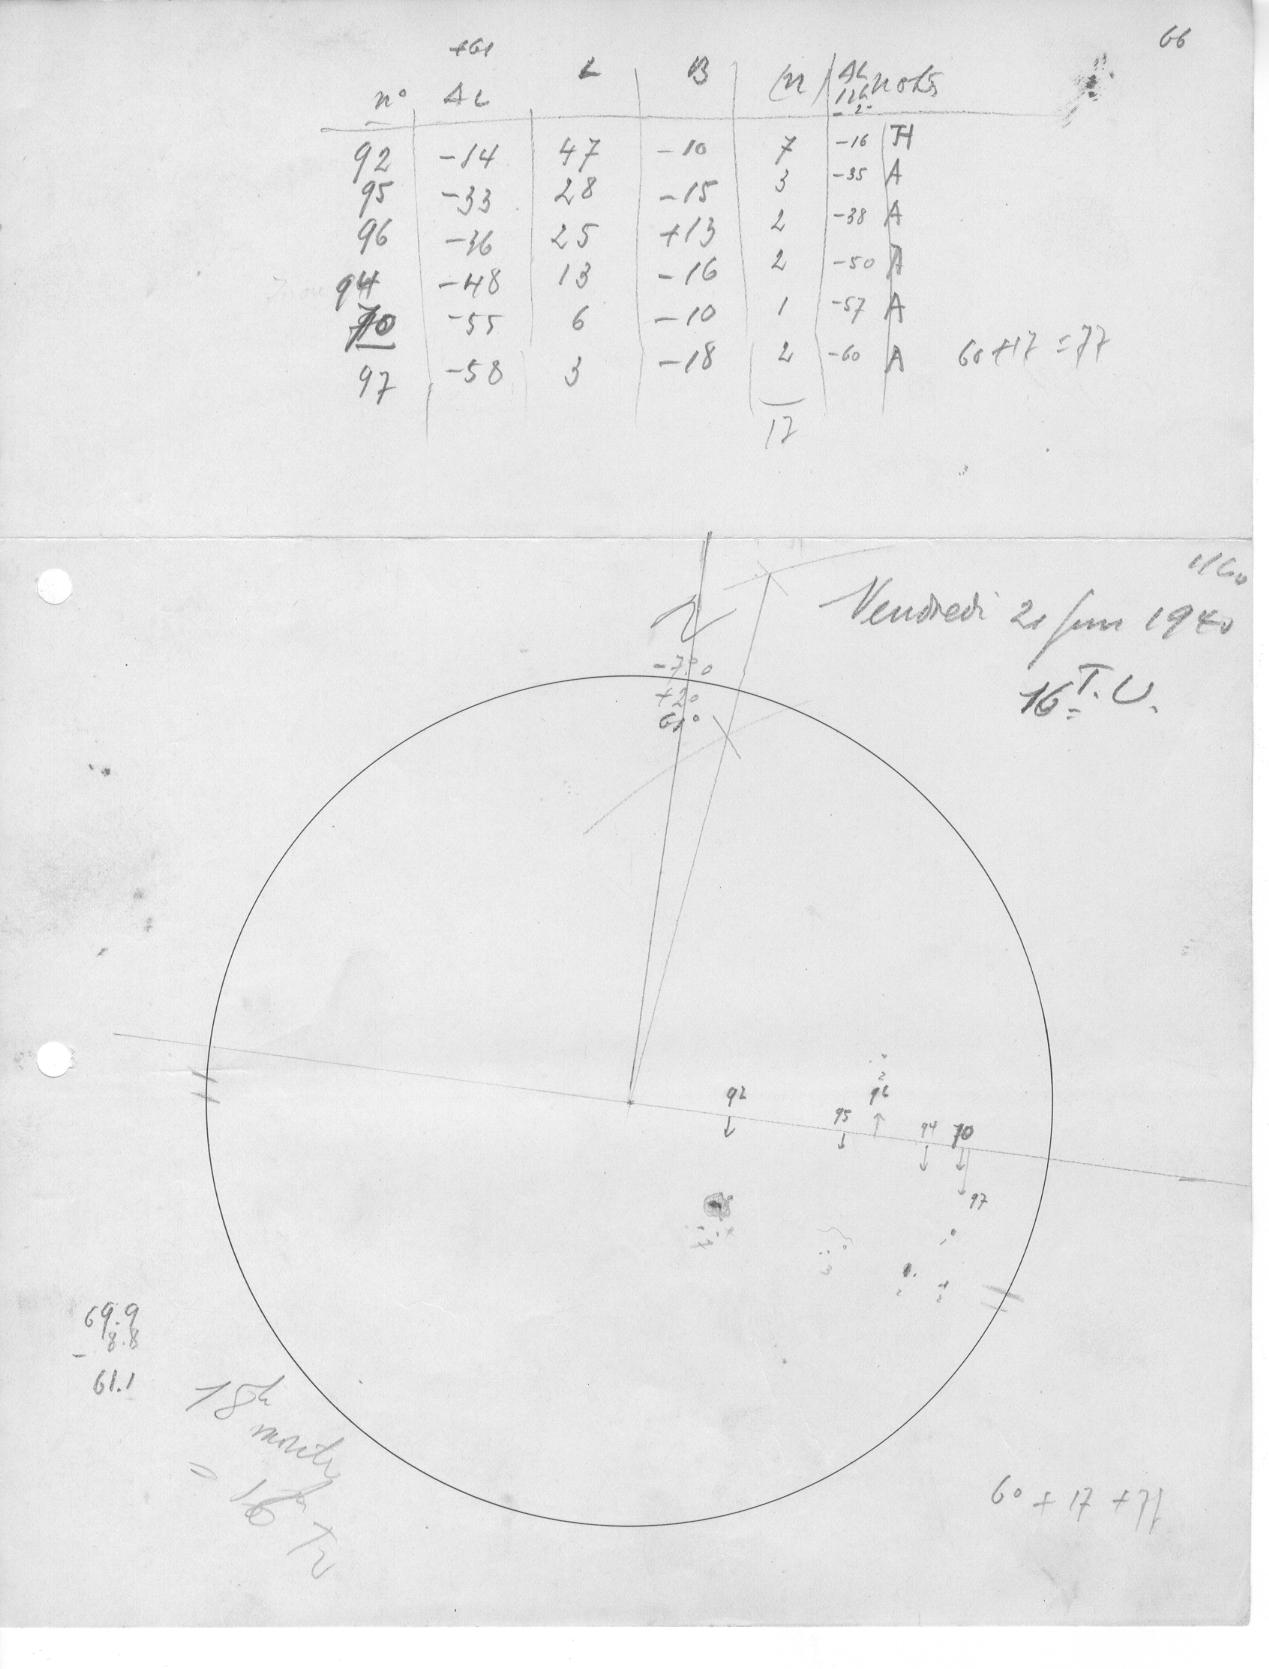 66
+61
n° ΔL L B m ΔL 12h nots
92 -14 47 -10 7 -16 JH
95 -33 28 -15 3 -35 A
96 -36 25 +13 2 -38 A
94 -48 13 -16 2 -50 A
70 -55 6 -10 1 -57 A
97 -58 3 -18 2 -60 A
60+17=77
17
Vendredi 21 juin 1940
16 T.U.
N
-7°
+2°
61°
2
92 95 96 94 70
97
3
2
2
69.9
8.8
-
61.1
18h montre
= 16h TU
60+17+77